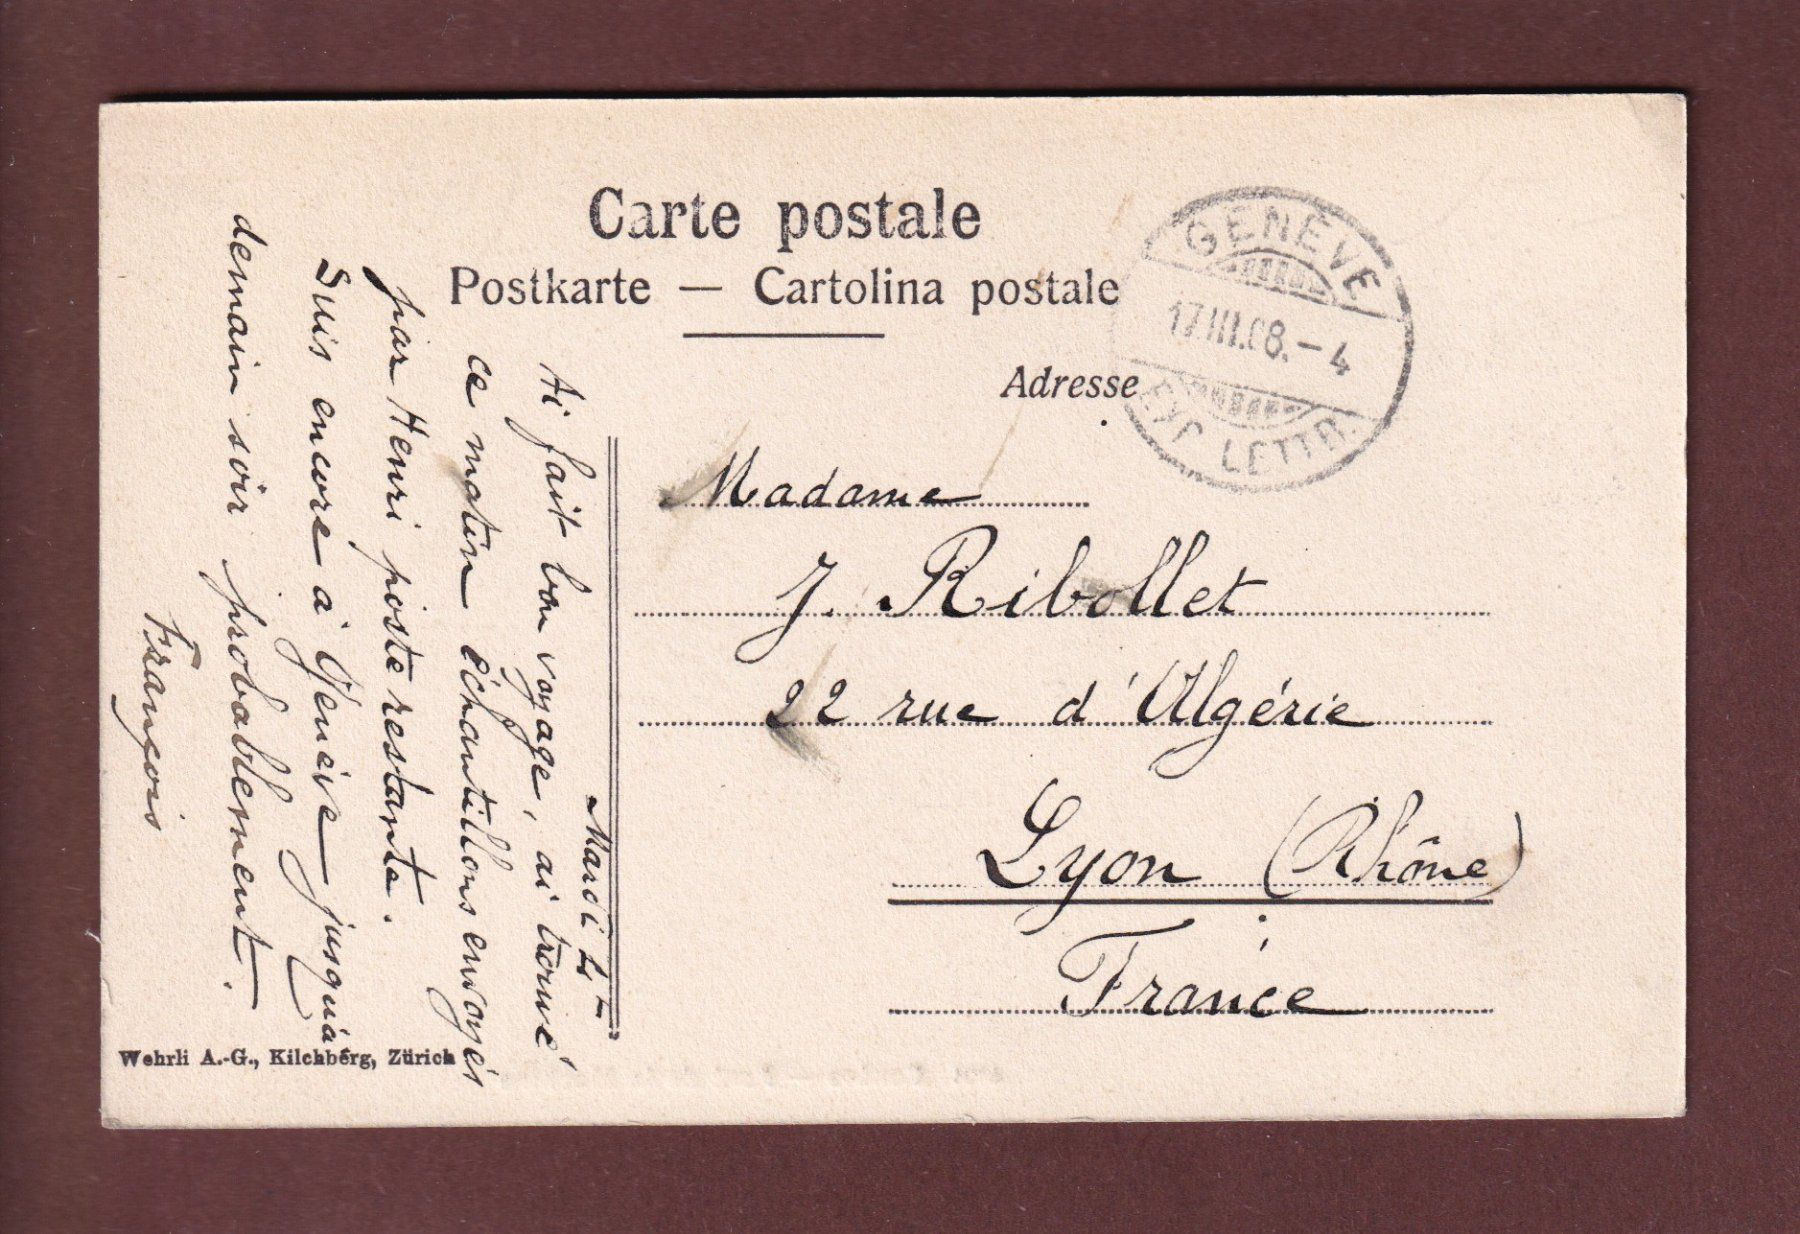 Carte postale
Postkarte — Cartolina postale
Adresse
GENÈVE
17.III.08.–4
EXP. LETTR.
Madame
J. Ribollet
22 rue d'Algérie
Lyon (Rhône)
France
Mardi 4h
Ai fait bon voyage, ai trouvé
ce matin échantillons envoyés
par Henri poste restante.
Suis encore à Genève jusquà
demain soir probablement.
François
Wehrli A.-G., Kilchberg, Zürich